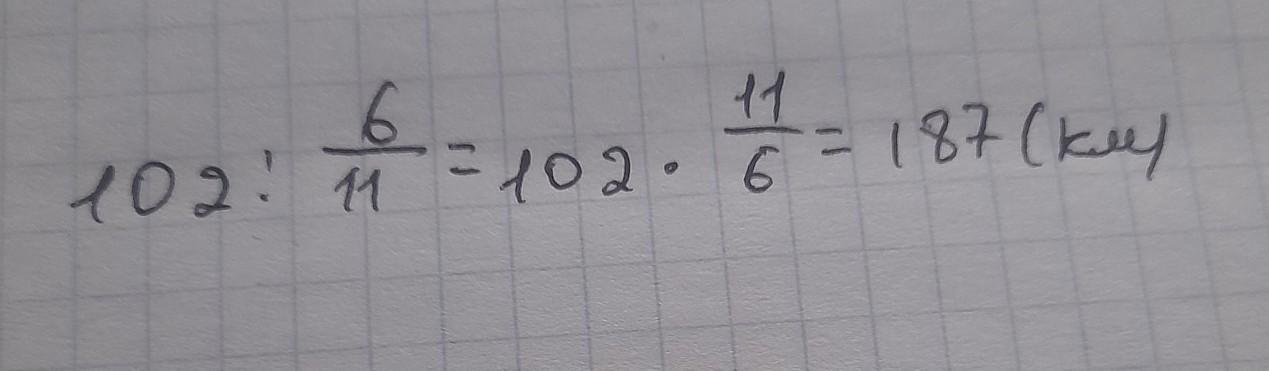 102 : 6/11 = 102 · 11/6 = 187 (км)